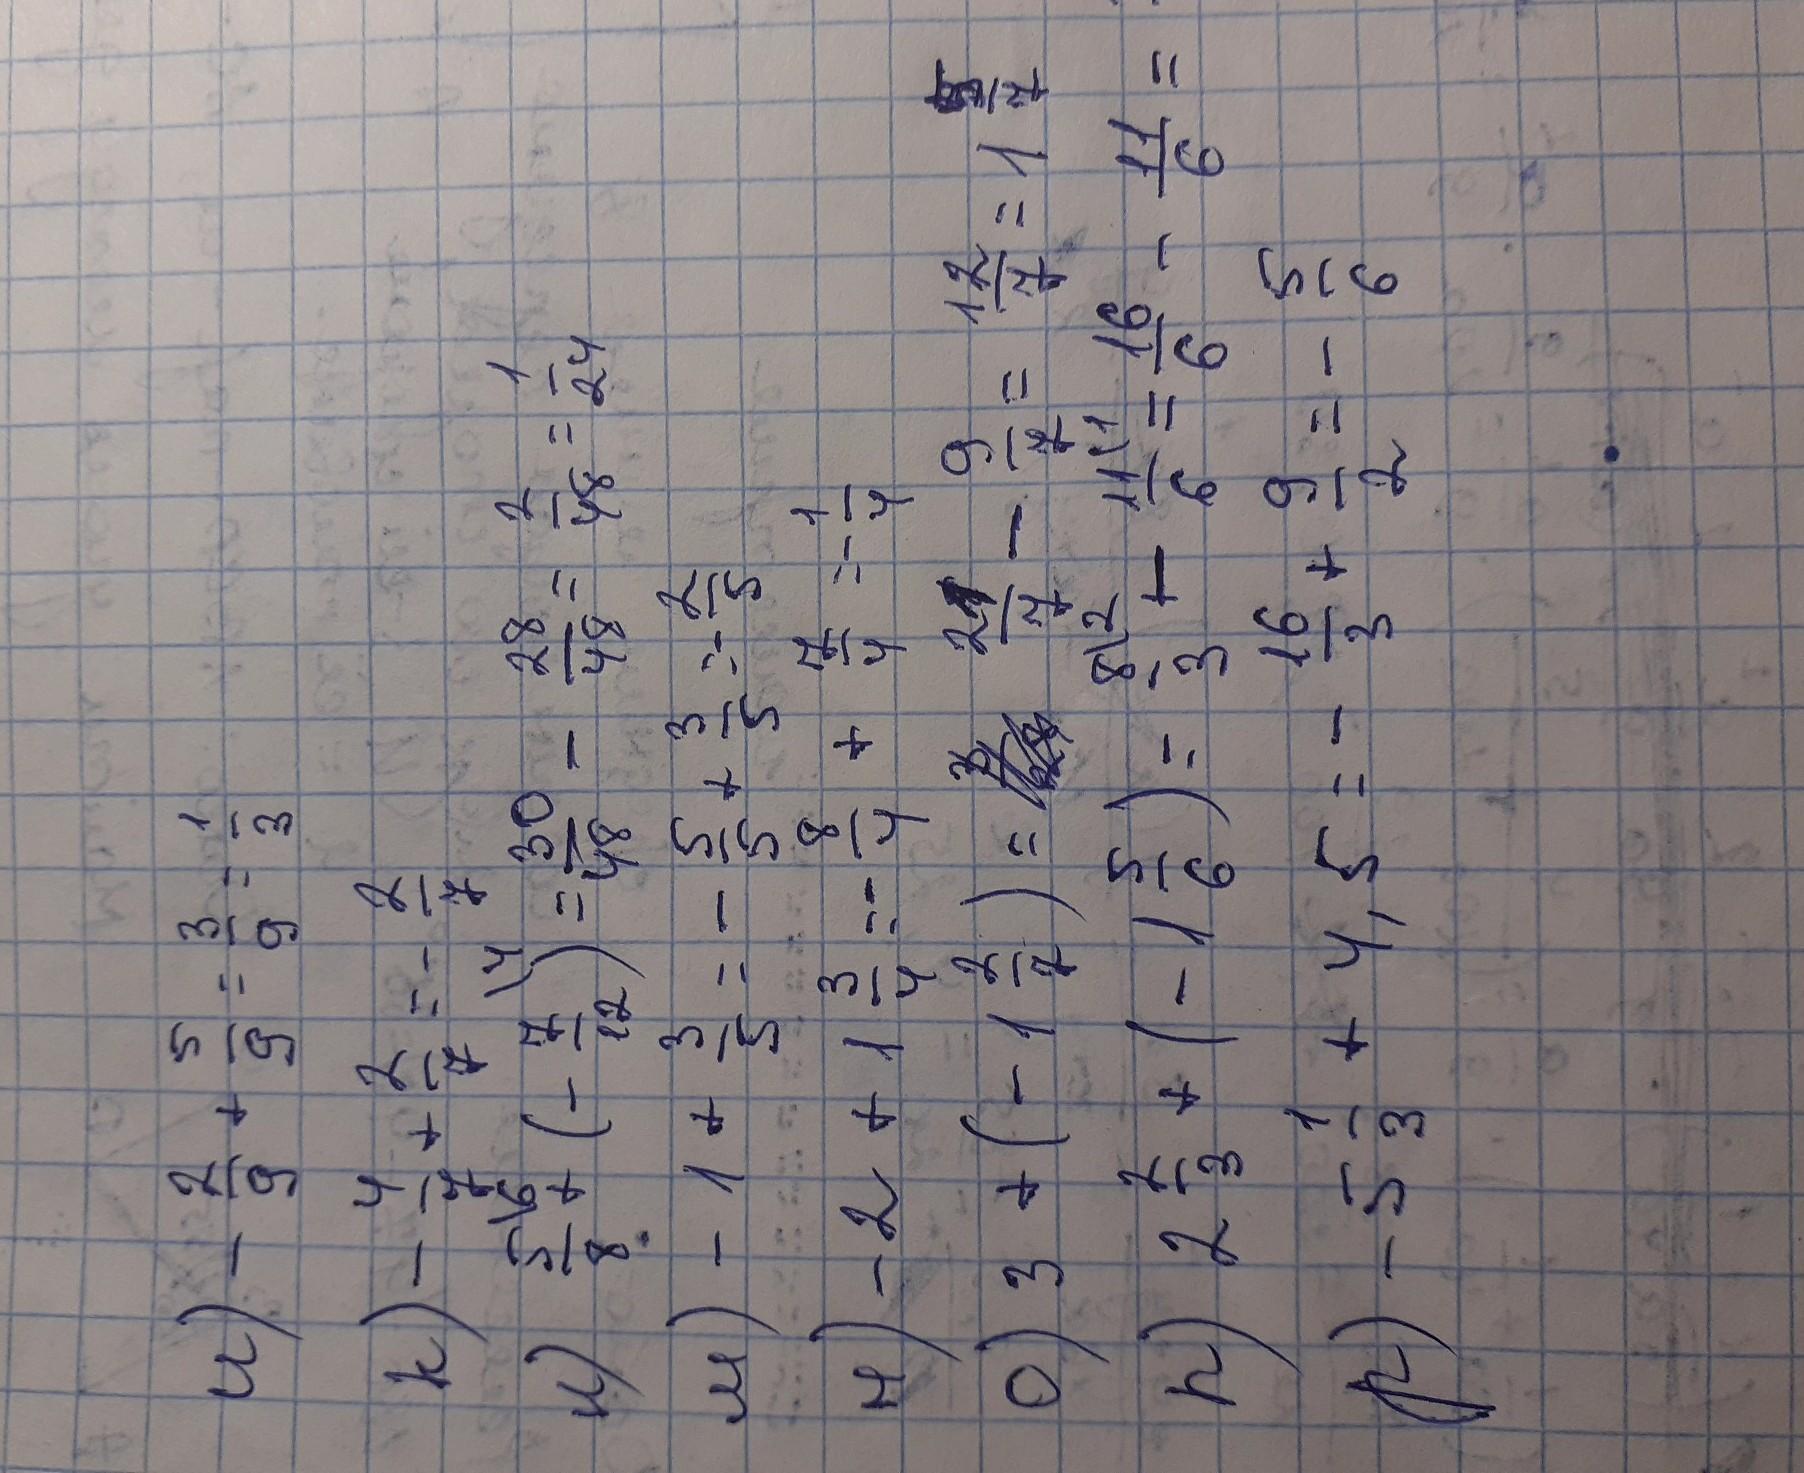 и) - 2/9 + 5/9 = 3/9 = 1/3
к) - 4/7 + 2/7 = - 2/7
л) 5/8 \6 + (- 7/12 \4) = 30/48 - 28/48 = 2/48 = 1/24
м) - 1 + 3/5 = - 5/5 + 3/5 = - 2/5
н) - 2 + 1 3/4 = - 8/4 + 7/4 = - 1/4
о) 3 + (- 1 2/7) = 21/7 - 9/7 = 12/7 = 1 5/7
п) 2 2/3 + (- 1 5/6) = 8/3 \2 - 11/6 \1 = 16/6 - 11/6 =
р) - 5 1/3 + 4,5 = - 16/3 + 9/2 = - 5/6